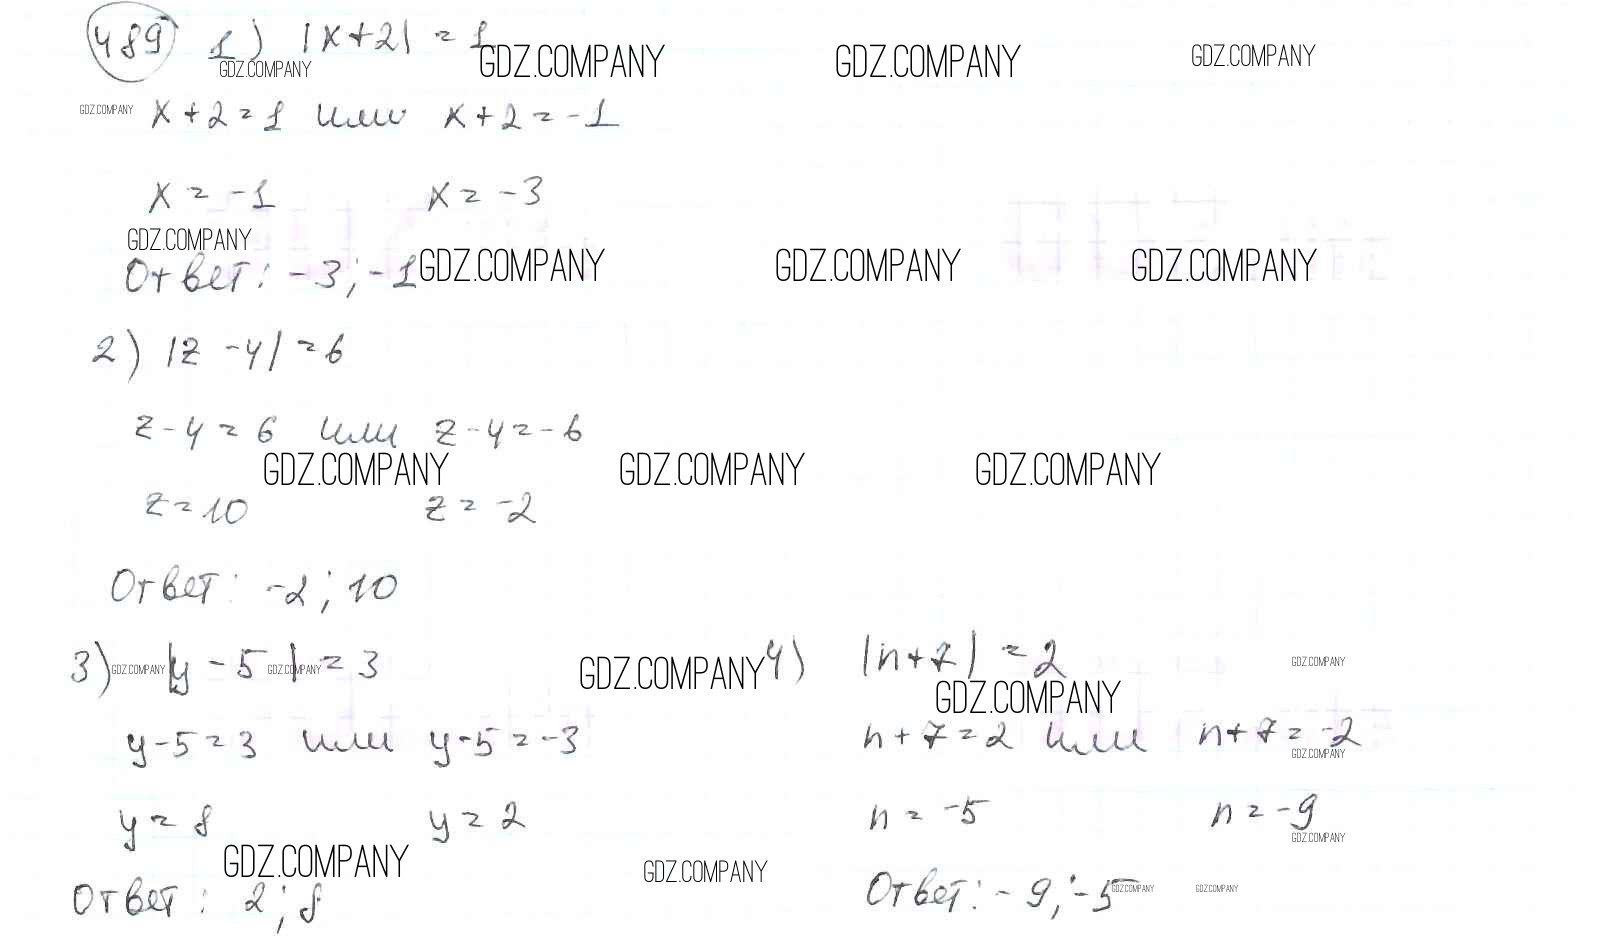 489 1) |x+2| = 1
GDZ.COMPANY GDZ.COMPANY GDZ.COMPANY GDZ.COMPANY
GDZ.COMPANY x+2=1 или x+2=-1
x = -1 x = -3
GDZ.COMPANY
Ответ: -3; -1 GDZ.COMPANY GDZ.COMPANY GDZ.COMPANY
2) |z-4| = 6
z-4=6 или z-4=-6
GDZ.COMPANY GDZ.COMPANY GDZ.COMPANY
z=10 z=-2
Ответ: -2; 10
3) |y-5| = 3
GDZ.COMPANY GDZ.COMPANY GDZ.COMPANY
y-5=3 или y-5=-3
y=8 y=2
GDZ.COMPANY GDZ.COMPANY
Ответ: 2; 8
4) |n+7| = 2
GDZ.COMPANY GDZ.COMPANY
n+7=2 или n+7=-2
GDZ.COMPANY
n=-5 n=-9
GDZ.COMPANY
Ответ: -9; -5
GDZ.COMPANY GDZ.COMPANY